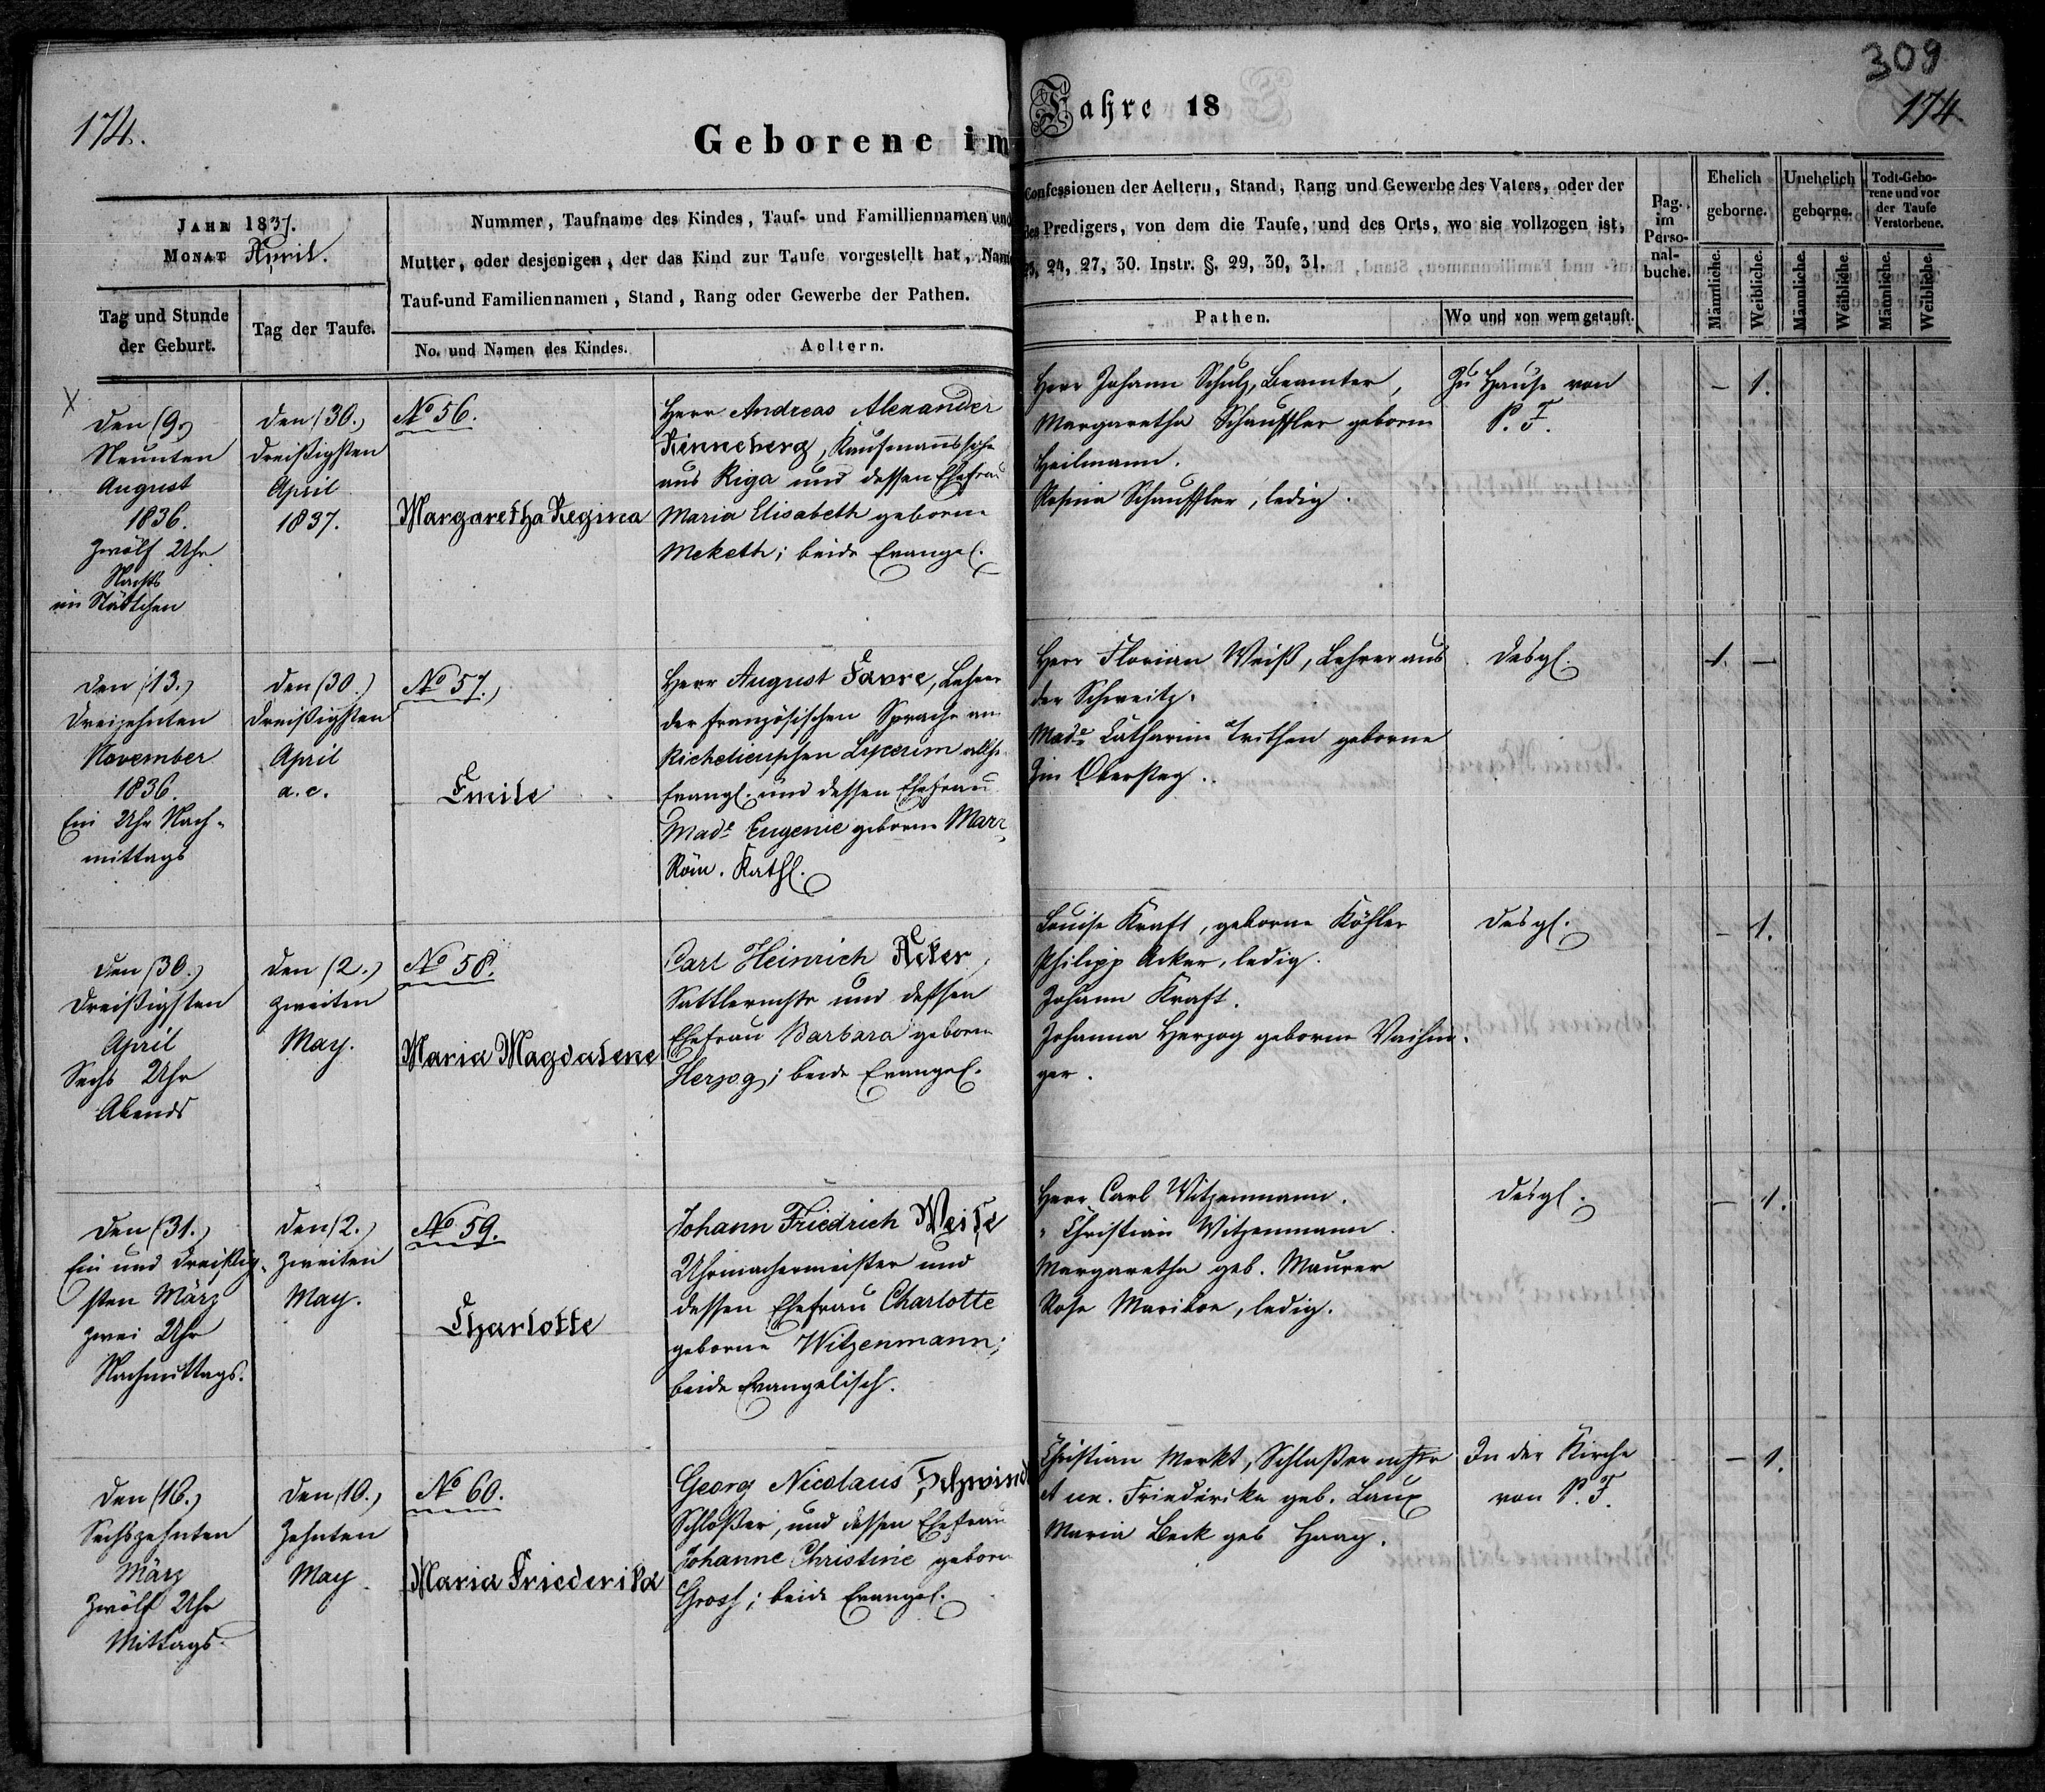 174.
Geborene im
Jahre 18
309
174
JAHR 1837.
MONAT April.
Nummer, Taufname des Kindes, Tauf- und Familliennamen und
Mutter, oder desjenigen, der das Kind zur Taufe vorgestellt hat, Nam
Tauf-und Familiennamen, Stand, Rang oder Gewerbe der Pathen.
Confessionen der Aeltern, Stand, Rang und Gewerbe des Vaters, oder der
des Predigers, von dem die Taufe, und des Orts, wo sie vollzogen ist,
23, 24, 27, 30. Instr. §. 29, 30, 31.
Tag und Stunde
der Geburt.
Tag der Taufe.
No. und Namen des Kindes.
Aeltern.
Pathen.
Wo und von wem getauft.
Pag.
im
Perso-
nal-
buche.
Ehelich
geborne.
Unehelich
geborne.
Todt-Gebo-
rene und vor
der Taufe
Verstorbene.
Männliche.
Weibliche.
Männliche.
Weibliche.
Männliche.
Weibliche.
X
den (9.)
Neunten
August
1836.
Zwölf Uhr
Nachts
im Städtchen
den (30.)
dreißigsten
April
1837.
No 56.
Margaretha Regina
Herr Andreas Alexander
Kinneberg, Kaufmannssohn
aus Riga und dessen Ehefrau
Maria Elisabeth geborne
Meketh; beide Evangel.
Herr Johann Schulz, Beamter,
Margaretha Schauffler geborne
Heilmann.
Rosina Schauffler, ledig.
Zu Hause von
P. F.
- 1.
den (13.)
dreizehnten
November
1836.
Ein Uhr Nach-
mittags
den (30.)
dreißigsten
April
a. c.
No 57.
Emile
Herr August Favre, Lehrer
der französischen Sprache am
Richelieuschen Lyceum allh.
Evangl. und dessen Ehefrau
Made Eugenie geborne Marr
Röm. Kathl.
Herr Florian Weiß, Lehrer aus
der Schweitz.
Made Catharina Trithen geborne
Zin Obersteg.
desgl.
1. -
den (30.)
dreißigsten
April
Sechs Uhr
Abends
den (2.)
zweiten
May.
No 58.
Maria Magdalene
Carl Heinrich Acker,
Sattlermstr und dessen
Ehefrau Barbara geborne
Herzog; beide Evangel.
Louise Kraft, geborne Köhler
Philipp Acker, ledig.
Johann Kraft.
Johanna Herzog geborne Vaihin-
ger.
desgl.
- 1.
den (31.)
Ein und dreißig-
sten März
zwei Uhr
Nachmittags.
den (2.)
zweiten
May.
No 59.
Charlotte
Johann Friedrich Weise
Uhrmachermeister und
dessen Ehefrau Charlotte
geborne Witzenmann;
beide Evangelisch.
Herr Carl Witzenmann.
" Christian Witzenmann.
Margaretha geb. Maurer
Rosa Maribon, ledig.
desgl.
- 1.
den (16.)
Sechszehnten
März
Zwölf Uhr
Mittags.
den (10.)
Zehnten
May.
No 60.
Maria Friederika
Georg Nicolaus Schwind
Schloßer, und dessen Ehefrau
Johanne Christine geborn
Groß; beide Evangel.
Christian Merkt, Schloßermstr
Friederika geb. Laux
Maria Beck geb Haag.
In der Kirche
von P. F.
- 1.